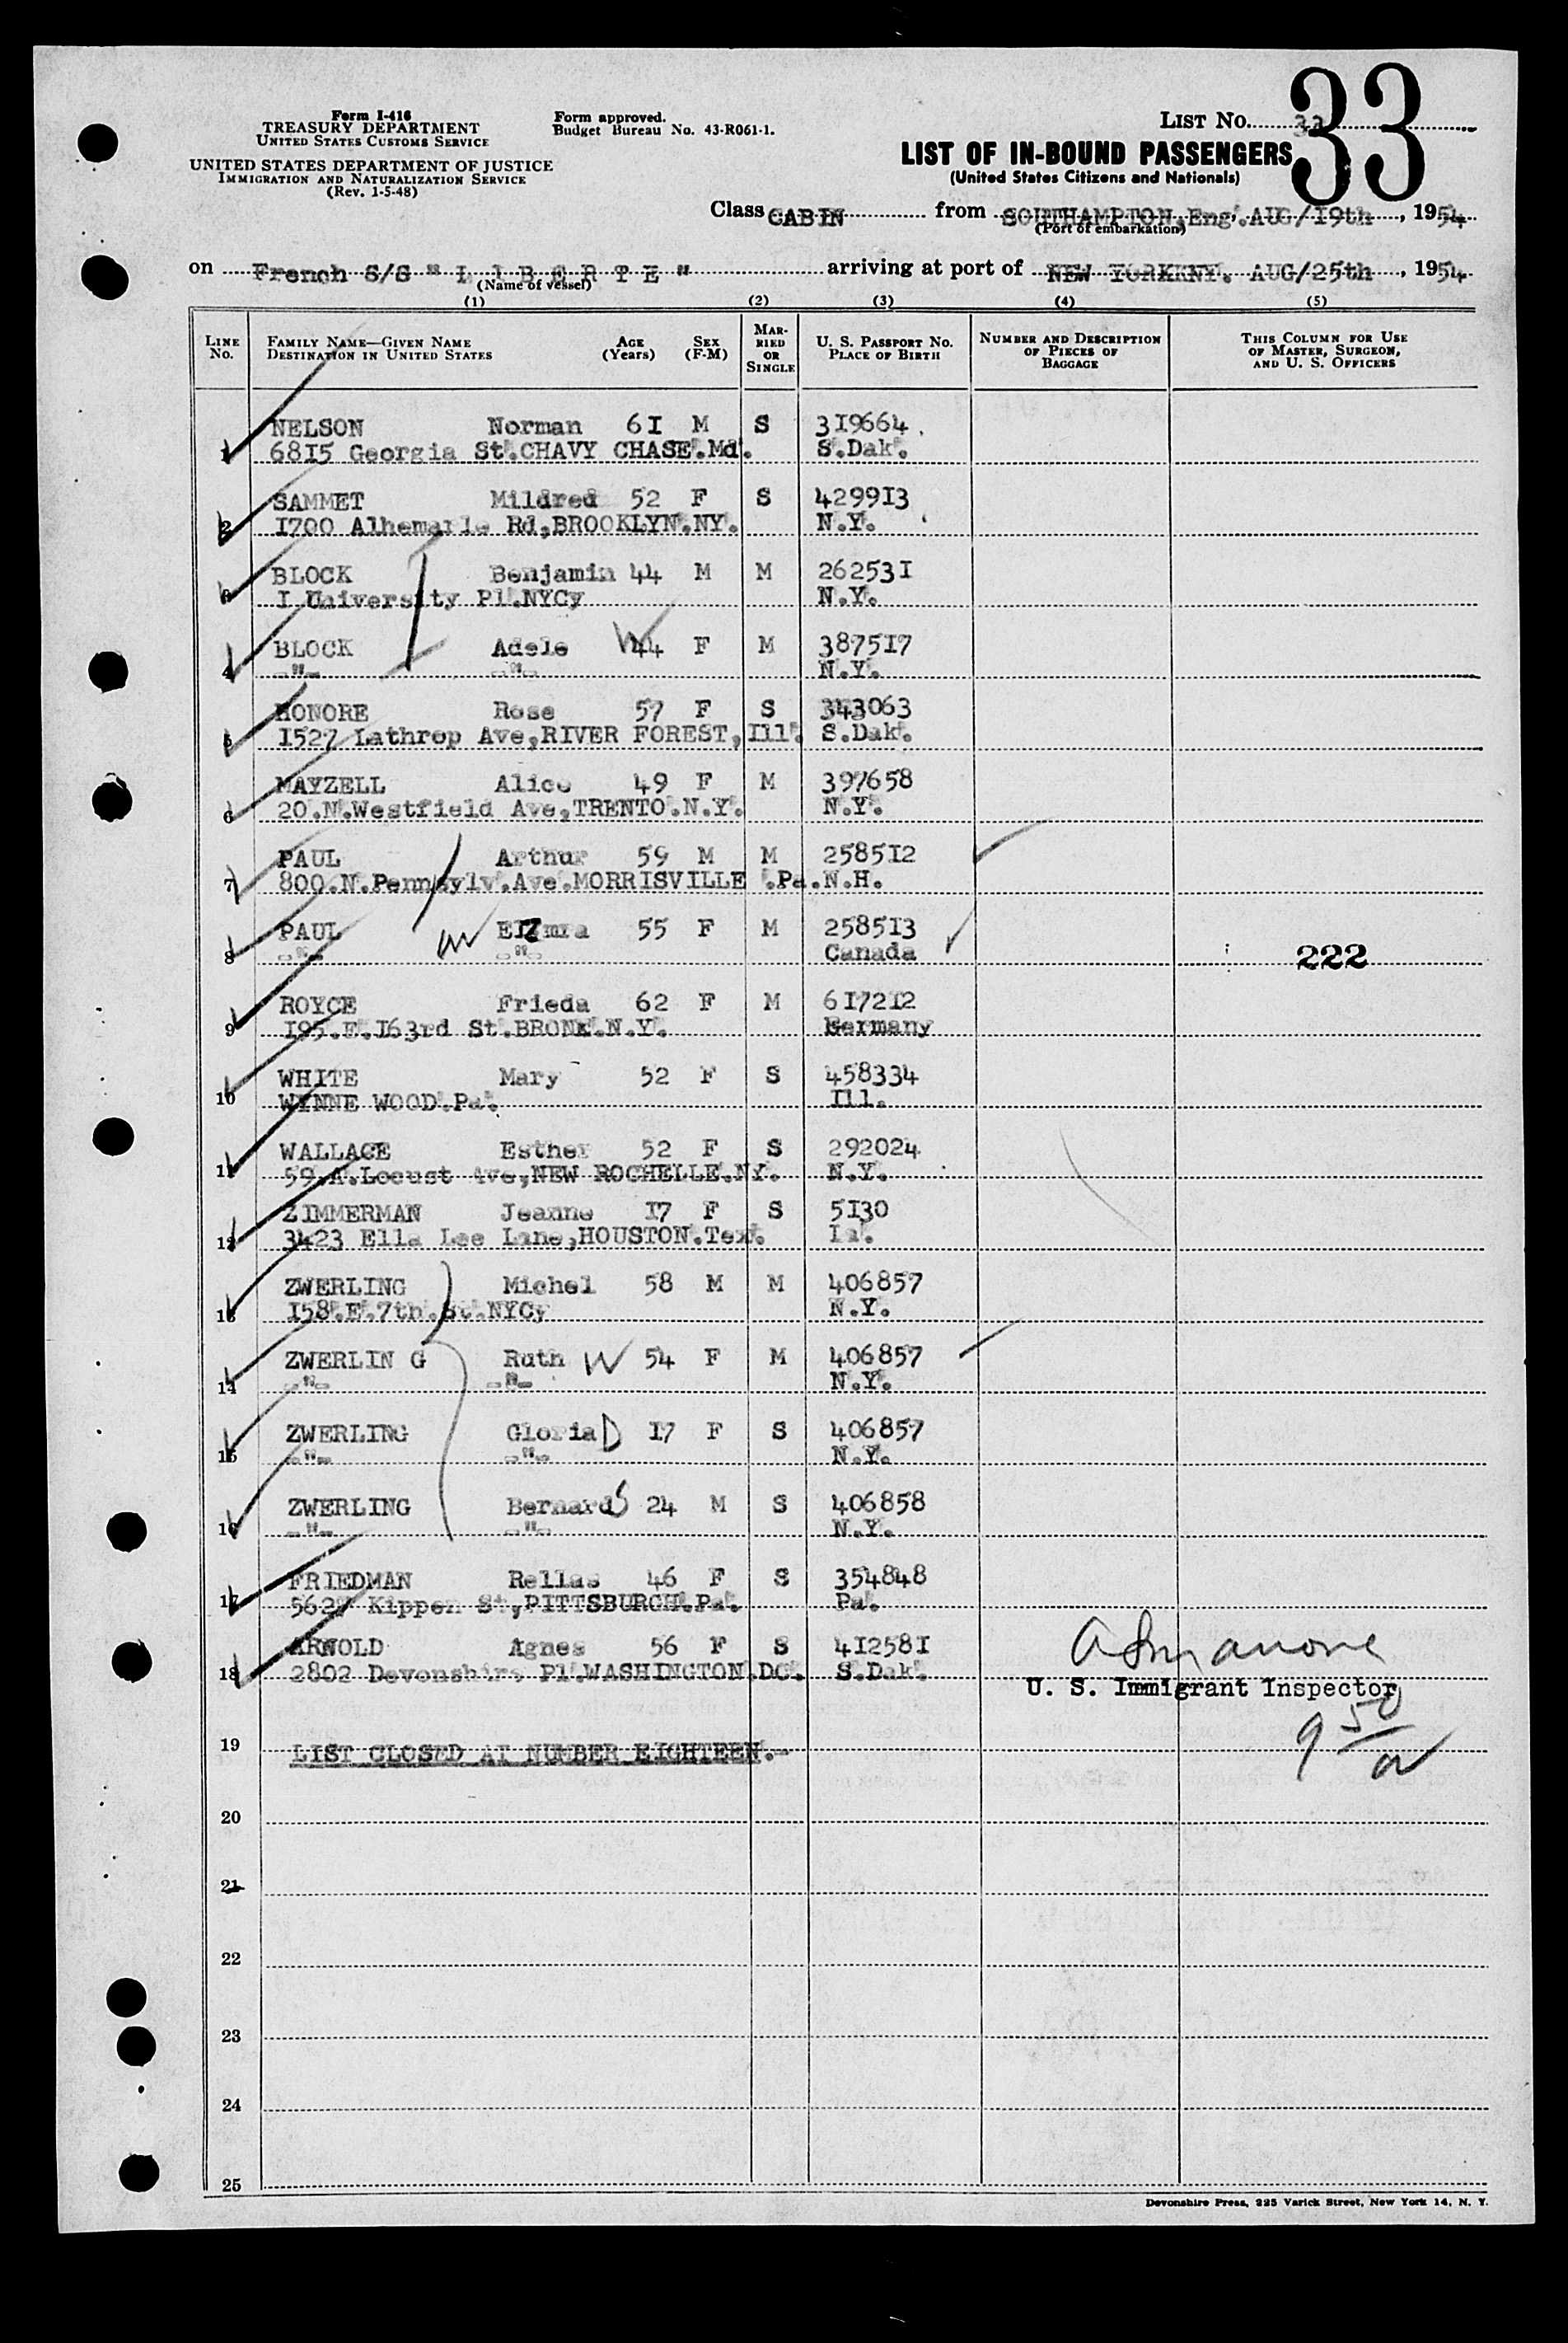 33
Form I-416
TREASURY DEPARTMENT
UNITED STATES CUSTOMS SERVICE
UNITED STATES DEPARTMENT OF JUSTICE
IMMIGRATION AND NATURALIZATION SERVICE
(Rev. 1-5-48)
Form approved.
Budget Bureau No. 43-R061-1.
LIST No. 33
LIST OF IN-BOUND PASSENGERS
(United States Citizens and Nationals)
Class CABIN from SOUTHAMPTON,Eng.AUG/19th, 1954
(Port of embarkation)
on French S/S " L I B E R T E " arriving at port of NEW YORKKNY. AUG/25th, 1954
(Name of vessel)
(1) (2) (3) (4) (5)
LINE No. FAMILY NAME—GIVEN NAME DESTINATION IN UNITED STATES AGE (Years) SEX (F-M) MARRIED OR SINGLE U. S. PASSPORT NO. PLACE OF BIRTH NUMBER AND DESCRIPTION OF PIECES OF BAGGAGE THIS COLUMN FOR USE OF MASTER, SURGEON, AND U. S. OFFICERS
NELSON Norman 6I M S 3I9664
1 68I5 Georgia St.CHAVY CHASE.Md. S.Dak.
SAMMET Mildred 52 F S 4299I3
2 I700 Alhemarle Rd,BROOKLYN.NY. N.Y.
BLOCK Benjamin 44 M M 26253I
3 I University Pl.NYCy N.Y.
BLOCK Adele W 44 F M 3875I7
4 -"- -"- N.Y.
HONORE Rose 57 F S 343063
5 I527 Lathrop Ave,RIVER FOREST,Ill. S.Dak.
MAYZELL Alice 49 F M 397658
6 20.N.Westfield Ave,TRENTO.N.Y. N.Y.
PAUL Arthur 59 M M 2585I2
7 800.N.Pennsylv.Ave.MORRISVILLE .Pa. N.H.
PAUL 55 F M 2585I3
8 -"- -"- Canada 222
ROYCE Frieda 62 F M 6I72I2
9 I95.E.I63rd St.BRONX.N.Y. Germany
WHITE Mary 52 F S 458334
10 WYNNE WOOD.Pa. Ill.
WALLACE Esther 52 F S 292024
11 59.A.Locust Ave,NEW ROCHELLE.NY. N.Y.
ZIMMERMAN Jeanne I7 F S 5I30
12 3423 Ella Lee Lane,HOUSTON.Tex. Ia.
ZWERLING Michel 58 M M 406857
13 I58.E.7th.St.NYCy N.Y.
ZWERLIN G Ruth W 54 F M 406857
14 -"- -"- N.Y.
ZWERLING Gloria D I7 F S 406857
15 -"- -"- N.Y.
ZWERLING Bernard S 24 M S 406858
16 -"- -"- N.Y.
FRIEDMAN Rellas 46 F S 354848
17 Kippen St,PITTSBURGH.Pa. Pa.
ARNOLD Agnes 56 F S 4I258I
18 2802 Devonshire Pl.WASHINGTON.DC. S.Dak.
U. S. Immigrant Inspector
9 50 a
19 LIST CLOSED AT NUMBER EIGHTEEN.-
20
21
22
23
24
25
Devonshire Press, 225 Varick Street, New York 14, N. Y.